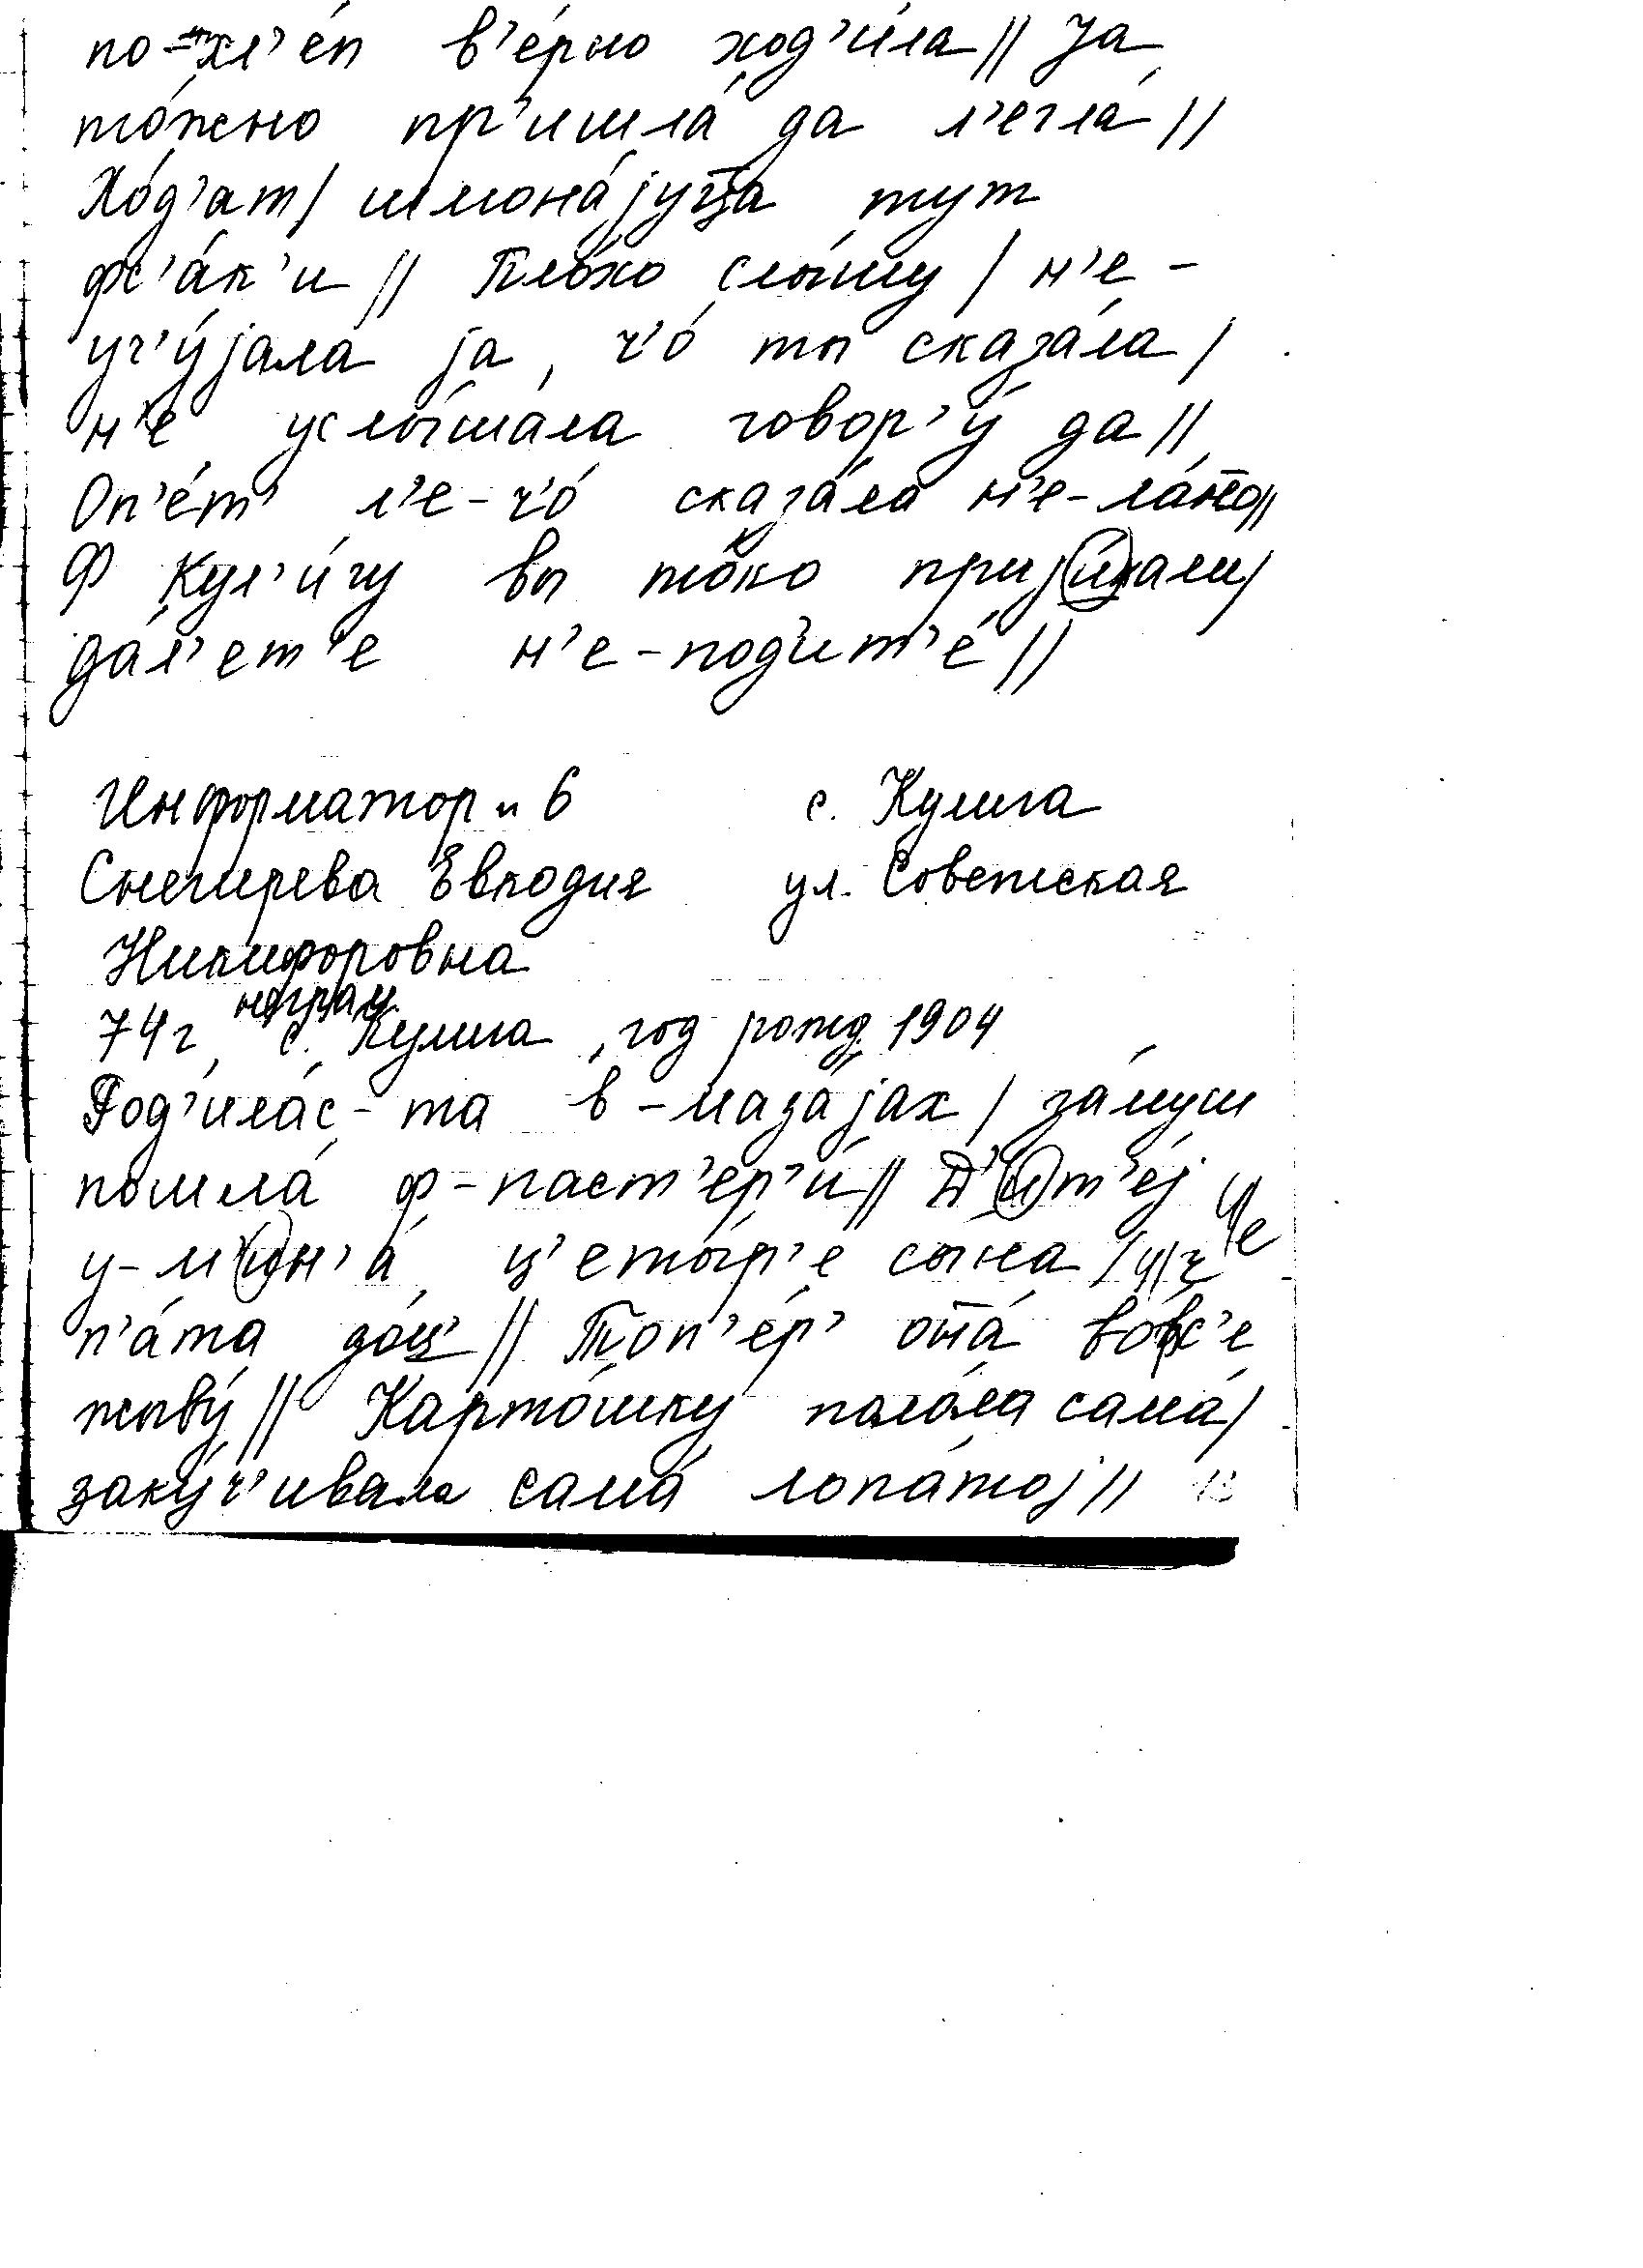 по-хл'е́п в'е́рно ход'и́ла // Jа
то́жно пр'ишла́ да л'егла́ //
Хо́д'ат / шмона́jуца тут
фс'а́к'и // Пло́хо слы́шу / н'е-
уч'у́jала jа, ч'о́ ты сказа́ла /
н'е услы́шала говор'у́ да //
Оп'е́т' л'е-ч'о́ сказа́ла н'е-ла́но //
Ф Кул'и́гу вы то́ко приjи́хали /
да́л'ет'е н'е-под'ит'е́ //
Информатор н 6 с. Кулига
Снегирева Евкодия ул. Советская
Никифоровна
неграм.
74 г, с. Кулига, год рожд. 1904
Род'ила́с-та в-маза́jах / за́муш
пошла́ ф-паст'ер'и́ // Д'ит'е́j
у-м'ин'а́ ц'еты́р'е сы́на /
п'а́та доц' // Топ'е́р' одна́ во́вс'е
жыву́ // Карто́шку пола́ла сама́ /
заку́ч'ивала сама́ лопа́тоj //